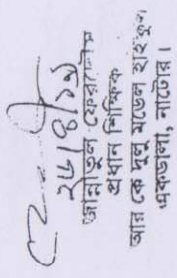 ২৮/৪/১১
জান্নাতুল ফেরদৌস
প্রধান শিক্ষিক
আর কে দুলু মডেল হাইস্কুল
একডালা, নাটোর।